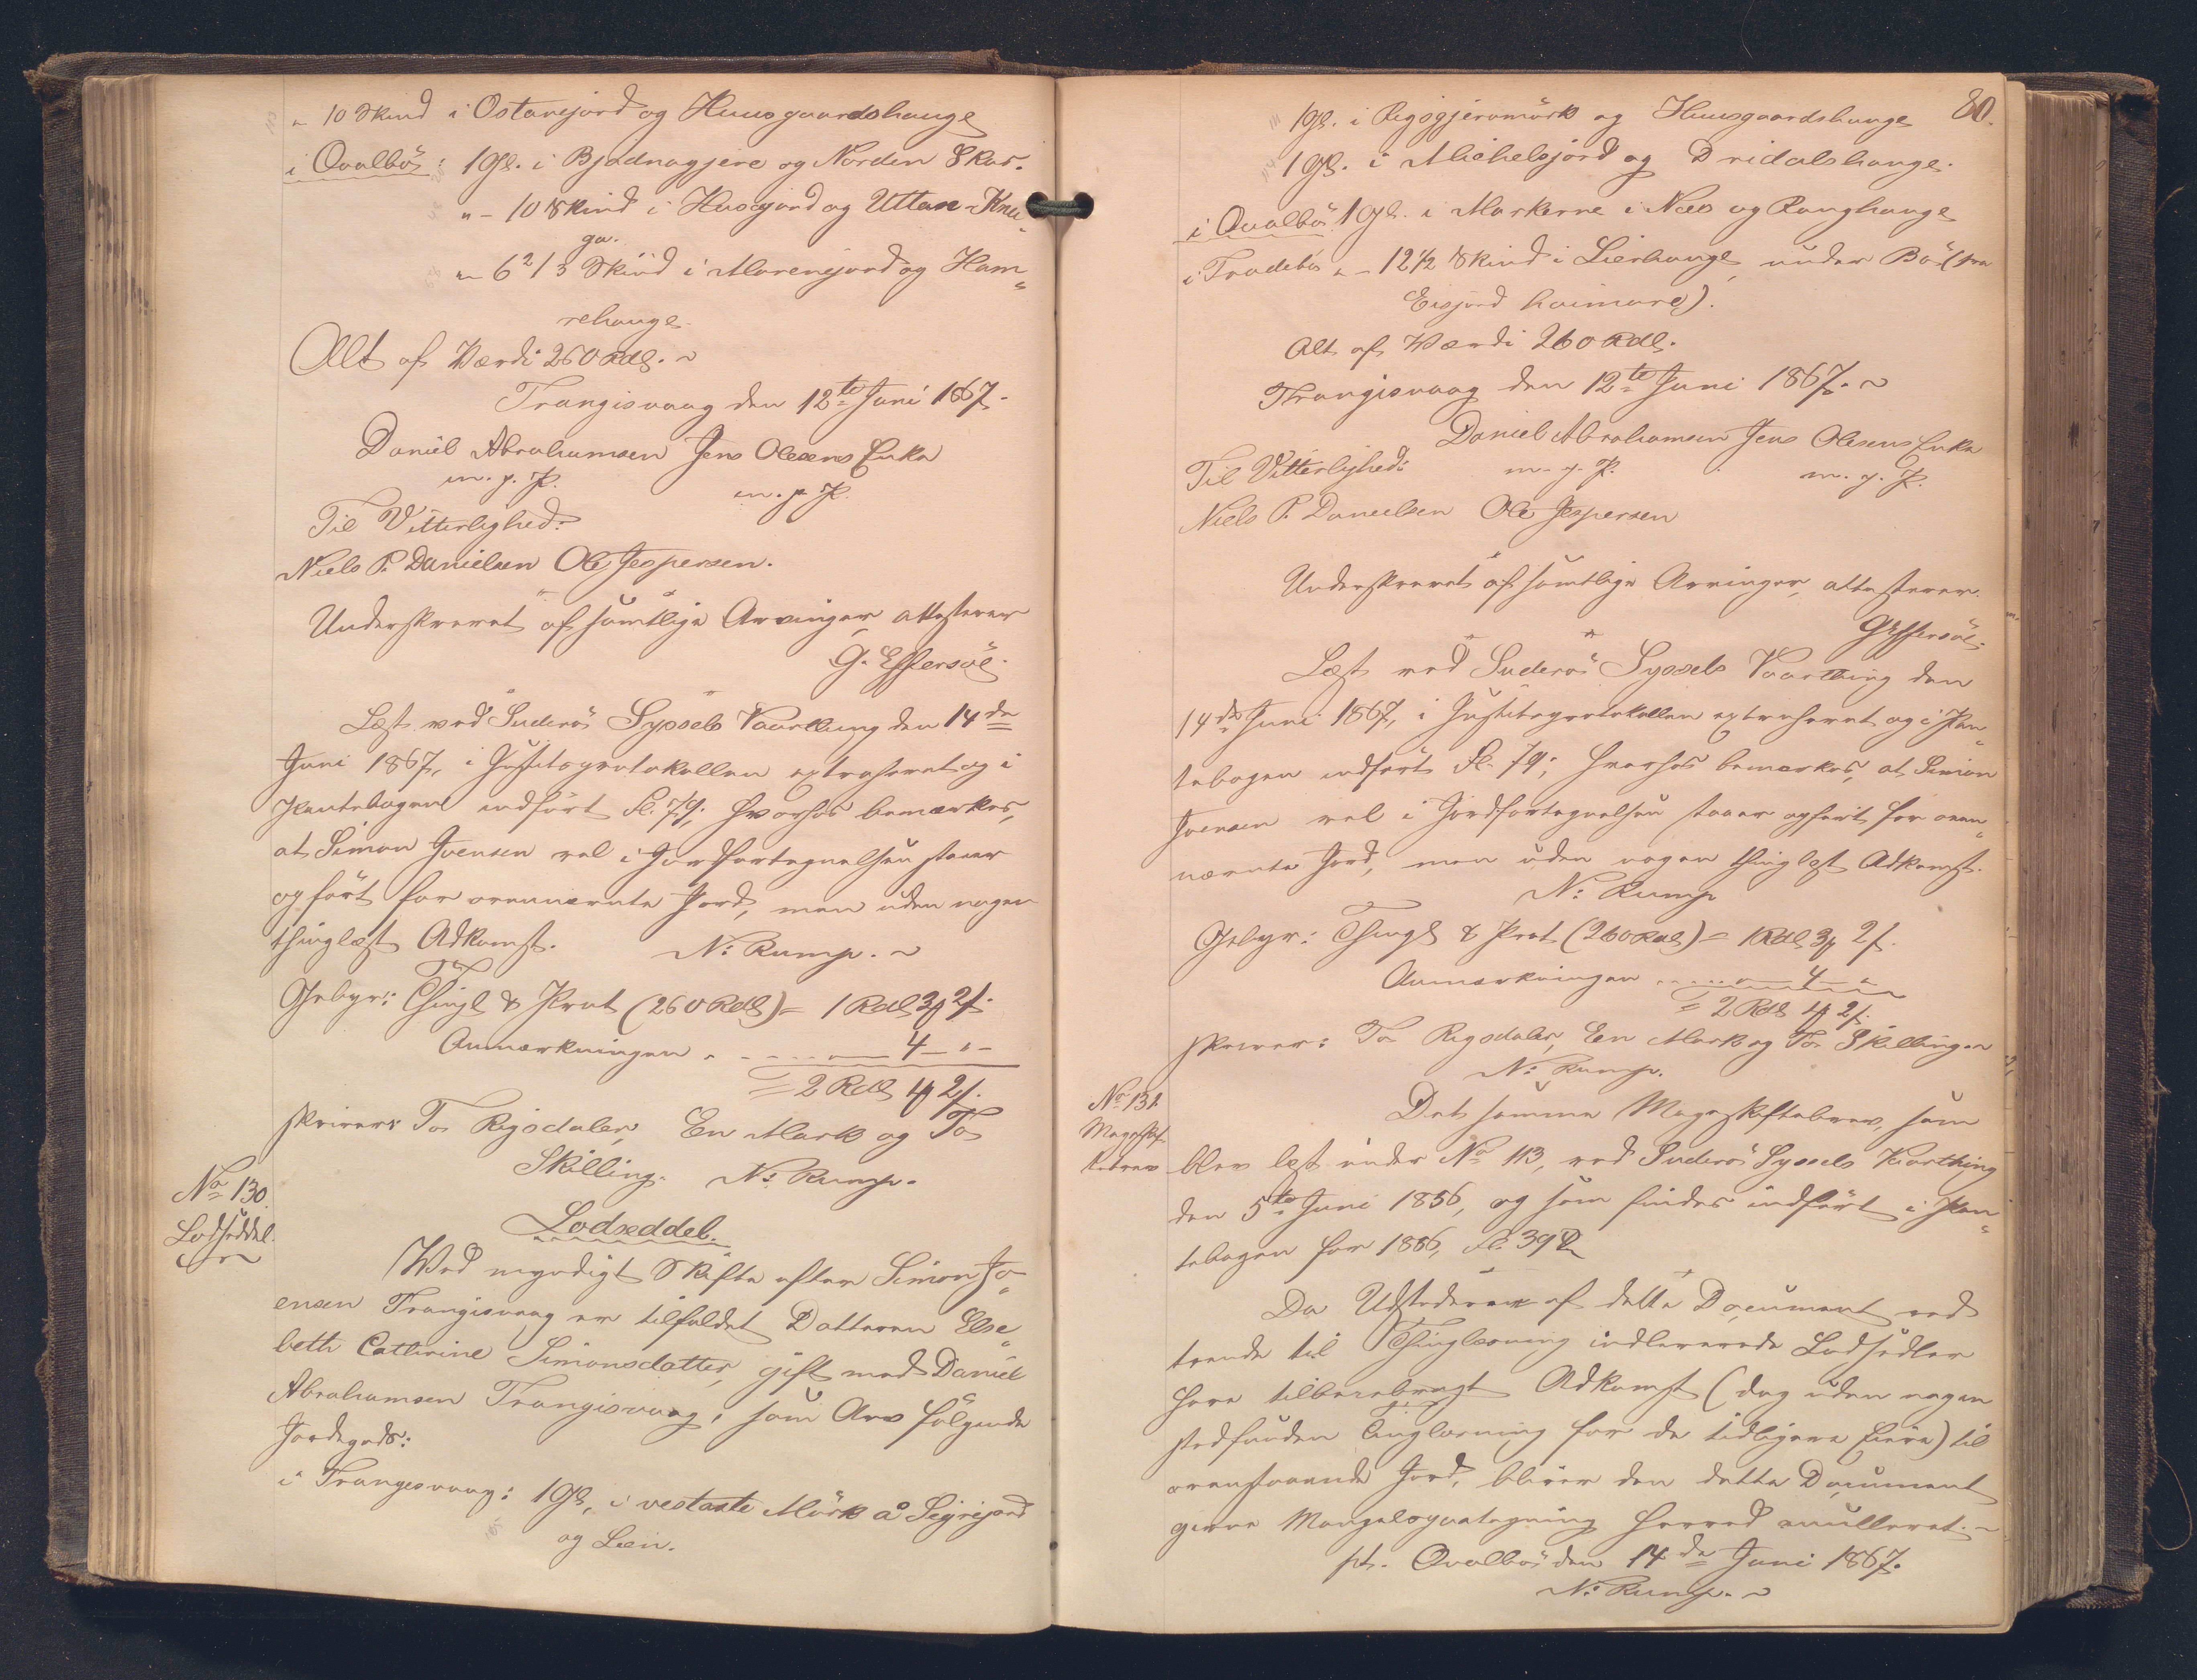 „ 10 Skind i Ostanejord og Huusgaardshauge
i Qvalböe: 1 Gl. i Bjednagjere og Norden Skar.
„ – 10 Skind i Husejord og Uttan-Knu-
ga.
„ 6 2/3 Skind i Morenejord og Ham-
rehauge.
Alt af Værdi 260 Rdl. ~
Trangisvaag den 12te Juni 1867.
Daniel Abrahamsen Jens Olesens Enke
m. p. P. m. p. P.
Til Vitterlighed:
Niels P. Danielsen Ole Jespersen.
Underskrevet af samtlige Arvinger, attesterer
G. Effersöe.
Læst ved Suderö Syssels Vaarthing den 14de
Juni 1867, i Justitsprotokollen extraheret og i
Pantebogen indfört Fl. 79; hvorhos bemærkes,
at Simon Joensen vel i Jordfortegnelsen staaer
opfört for ovennævnte Jord, men uden nogen
thinglæst Adkomst. N: Rump. ~
Gebyr: Thingl & Prot (260 Rdl) = 1 Rdl 3 ℳ 2 ſ.
Anmærkningen . - - - - — 4 - „ -
= 2 Rdl 1 ℳ 2 ſ.
skriver: To Rigsdaler, En Mark og To
Skilling. N: Rump.
No 130.
Lodseddel.
Lodseddel.
Ved myndigt Skifte efter Simon Jo-
ensen Trangisvaag er tilfaldet Datteren Else-
beth Cathrine Simonsdatter, gift med Daniel
Abrahamsen Trangisvaag, som Arv fölgende
Jordegods:
i Trangesvaag: 1 Gl. i vestaste Mörk å Sigrejord
og Lien.
80.
1 Gl. i Rigsgjeromörk og Huusgaardshauge
1 Gl. i Michelsjord og Dridalshauge.
i Qvalbö 1 Gl. i Markerne i Næs og Ranghauge
i Trodebö „ – 12 1/2 Skind i Lierhauge, under Bö (fra
Eisjord haimare).
Alt af Værdi 260 Rdl.
Thrangisvaag den 12te Juni 1867. ~
Daniel Abrahamsen Jens Olesens Enke
Til Vitterlighed: m. p. P. m. p. P.
Niels P. Danielsen Ole Jespersen
Underskrevet af samtlige Arvinger, attesterer
G Effersöe.
Læst ved Suderö Syssels Vaarthing den
14de Juni 1867, i Justitsprotokollen extraheret og i Pan-
tebogen indfört Fl. 79; hvorhos bemærkes, at Simon
Joensen vel i Jordfortegnelsen staaer opfört for oven-
nævnte Jord, men uden nogen thinglæst Adkomst.
N: Rump
Gebyr: Thingl & Prot (260 Rdl) = 1 Rdl 3 ℳ 2 ſ.
Anmærkningen . . . . . — 4 - „ -
= 2 Rdl 1 ℳ 2 ſ.
skriver: To Rigsdaler, En Mark og To Skillinger
N: Rump.
No 131.
Mageskif-
tebrev
Det samme Mageskiftebrev, som
blev læst under No 113, ved Suderö Syssels Vaarthing
den 5te Juni 1856, og som findes indfört i Pan-
tebogen for 1856, Fl. 392
Da Udstederen af dette Document ved
tvende til Thinglæsning indleverede Lodsedler
have tilveiebragt Adkomst (dog uden nogen
stedfunden Tinglæsning for de tidligere Eiere) til
ovenstaaende Jord, bliver den dette Document
givne Mangelspaategning herved anulleret. ~
pt. Qvalbö den 14de Juni 1867.
N: Rump. ~